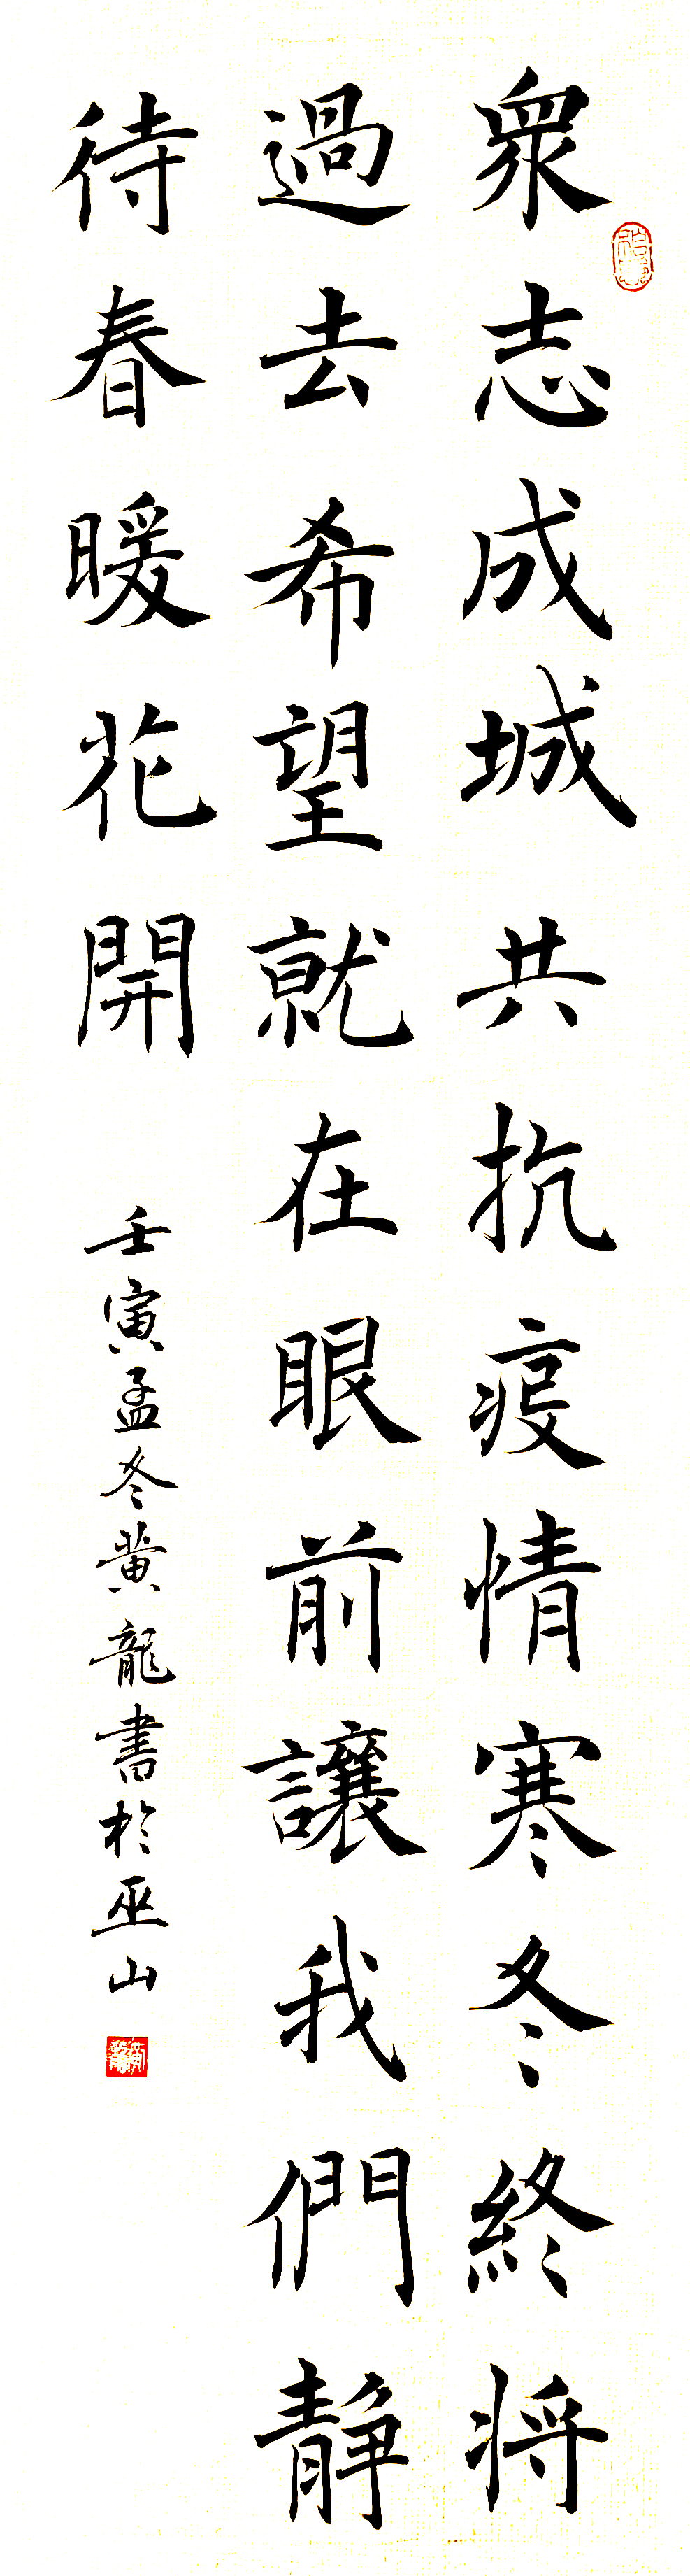 衆志成城共抗疫情寒冬終将
過去希望就在眼前讓我們静
待春暖花開
壬寅孟冬黄龍書於巫山